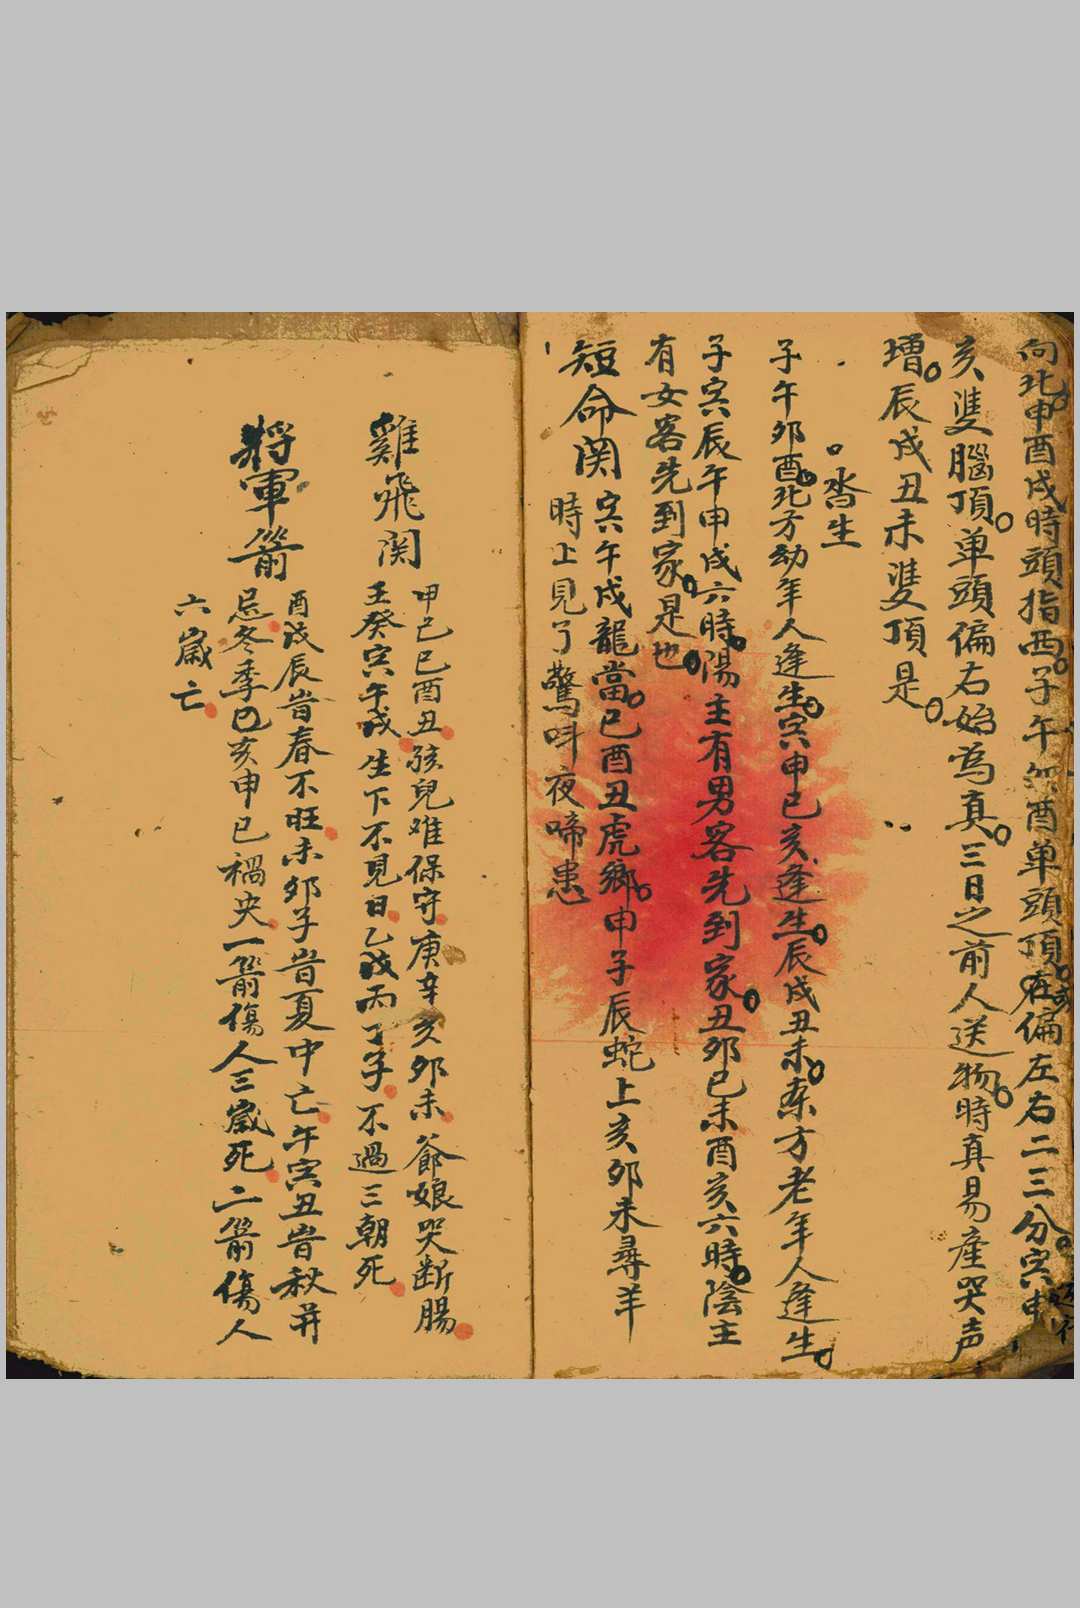 向北申酉戌時頭指西子午卯酉单頭頂在偏左右二三分寅申
亥雙腦頂单頭偏右始為真三日之前人送物時真易産哭声
璔辰戌丑未雙頂是
畓生
子午卯酉北方幼年人逢生寅申巳亥逢生辰戌丑未東方老年人逢生
子寅辰午申戌六時陽主有男客先到家丑卯巳未酉亥六時陰主
有女客先到家是也
短命関
寅午戌龍當巳酉丑虎鄉申子辰蛇上亥卯未尋羊
時上見了驚呌夜啼患
雞飛関
甲己巳酉丑孩兒难保守庚辛亥卯未爺娘哭断腸
壬癸寅午戌生下不見日乙戊丙丁子不過三朝死
將軍箭
酉戌辰旹春不旺未卯子旹夏中亡午寅丑旹秋并
忌冬季巳亥申巳禍央一箭傷人三歲死二箭傷人
六歲亡